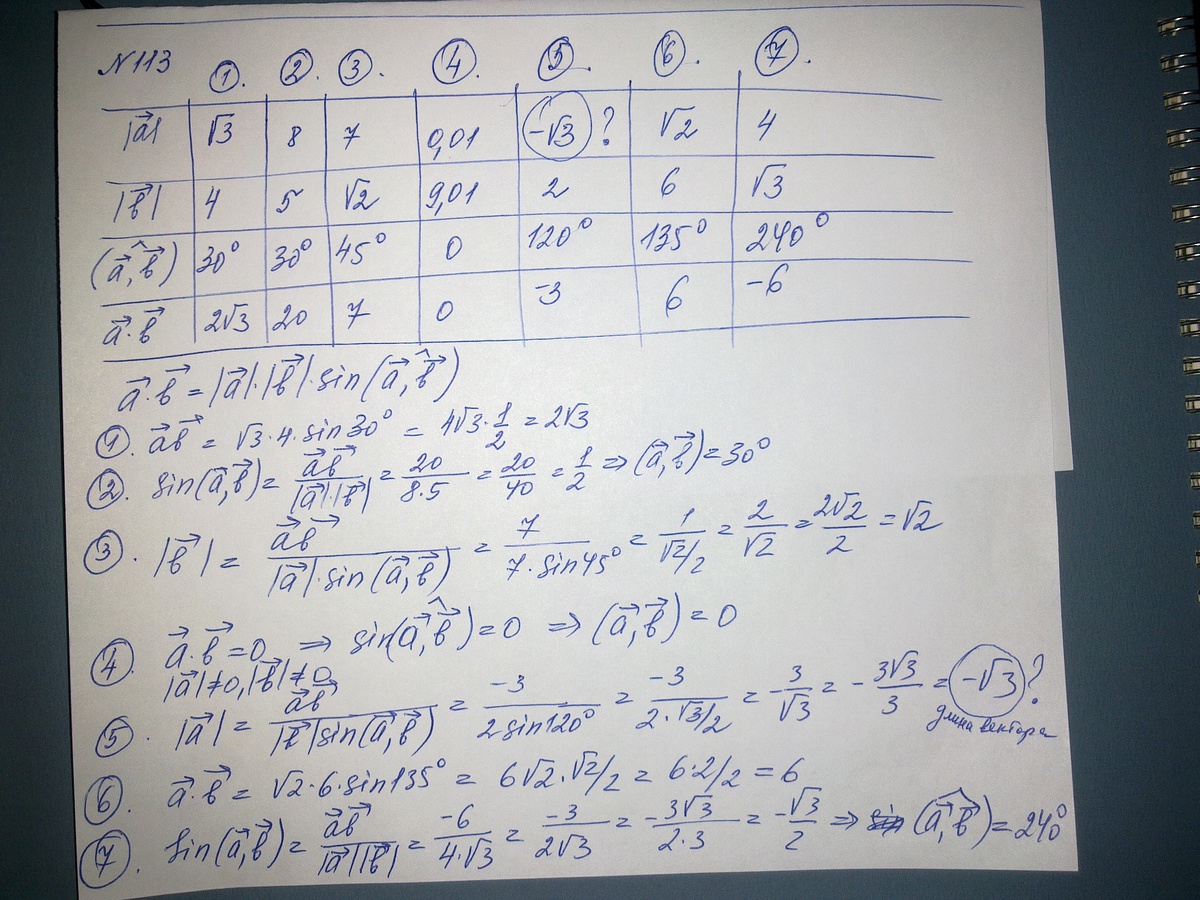 №113 ①. ②. ③. ④. ⑤. ⑥. ⑦.
|a⃗| √3 8 7 0,01 -√3 ? √2 4
|b⃗| 4 5 √2 9,01 2 6 √3
(a⃗,^b⃗) 30° 30° 45° 0 120° 135° 240°
a⃗·b⃗ 2√3 20 7 0 -3 6 -6
a⃗·b⃗ = |a⃗|·|b⃗|·sin(a⃗,^b⃗)
①. a⃗b⃗ = √3·4·sin30° = 4√3·1/2 = 2√3
②. sin(a⃗,b⃗) = a⃗b⃗/|a⃗|·|b⃗| = 20/8·5 = 20/40 = 1/2 ⇒ (a⃗,b⃗) = 30°
③. |b⃗| = a⃗b⃗/|a⃗|·sin(a⃗,b⃗) = 7/7·sin45° = 1/√2/2 = 2/√2 = 2√2/2 = √2
④. a⃗·b⃗ = 0 ⇒ sin(a⃗,^b⃗) = 0 ⇒ (a⃗,b⃗) = 0
|a⃗|≠0, |b⃗|≠0
⑤. |a⃗| = a⃗b⃗/|b⃗|sin(a⃗,b⃗) = -3/2sin120° = -3/2·√3/2 = -3/√3 = -3√3/3 = -√3 ?
длина вектора
⑥. a⃗·b⃗ = √2·6·sin135° = 6√2·√2/2 = 6·2/2 = 6
⑦. sin(a⃗,b⃗) = a⃗b⃗/|a⃗||b⃗| = -6/4·√3 = -3/2√3 = -3√3/2·3 = -√3/2 ⇒ (a⃗,^b⃗) = 240°